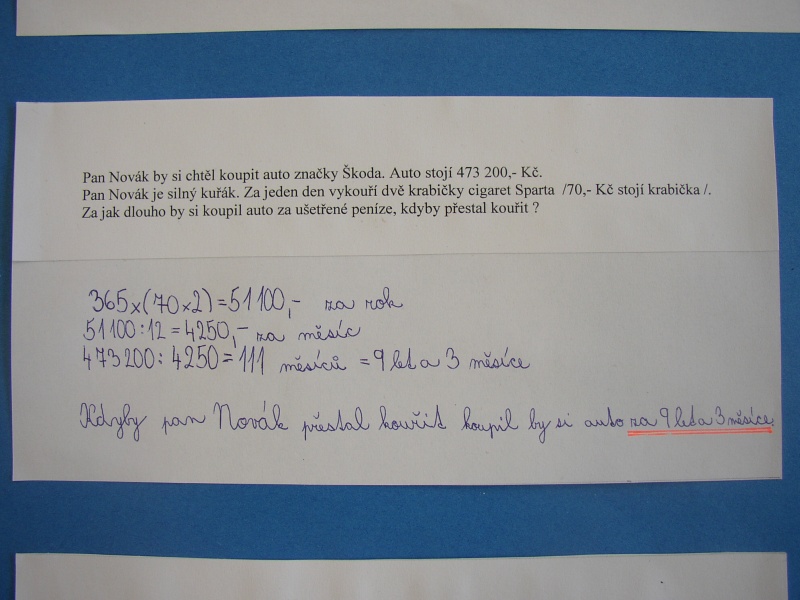 Pan Novák by si chtěl koupit auto značky Škoda. Auto stojí 473 200,- Kč.
Pan Novák je silný kuřák. Za jeden den vykouří dvě krabičky cigaret Sparta /70,- Kč stojí krabička /.
Za jak dlouho by si koupil auto za ušetřené peníze, kdyby přestal kouřit ?
365x(70x2)=51100,- za rok
51100:12=4250,- za měsíc
473200:4250=111 měsíců =9 let a 3 měsíce
Kdyby pan Novák přestal kouřit koupil by si auto za 9 let a 3 měsíce.